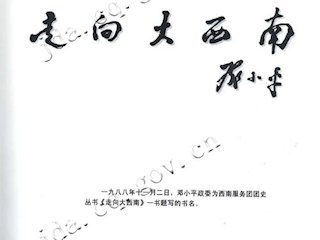 走向大西南
邓小平
一九八八年十一月二日，邓小平政委为西南服务团团史
丛书《走向大西南》一书题写的书名。